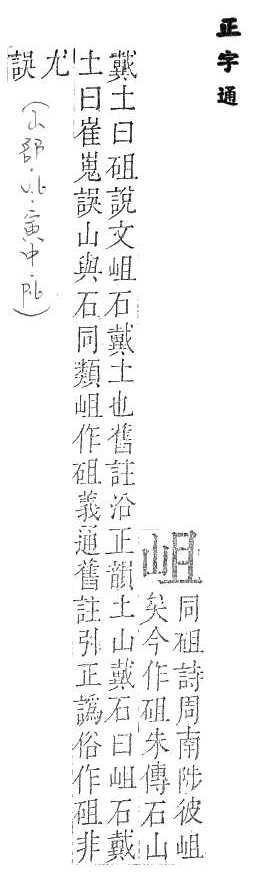 正字通
岨
同砠詩周南陟彼岨
矣今作砠朱傳石山
戴土曰砠說文岨石戴土也舊註沿正韻土山戴石曰岨石戴
土曰崔嵬誤山與石同類岨作砠義通舊註引正譌俗作砠非
尤
誤
(山部.V.6.寅中.P.6)